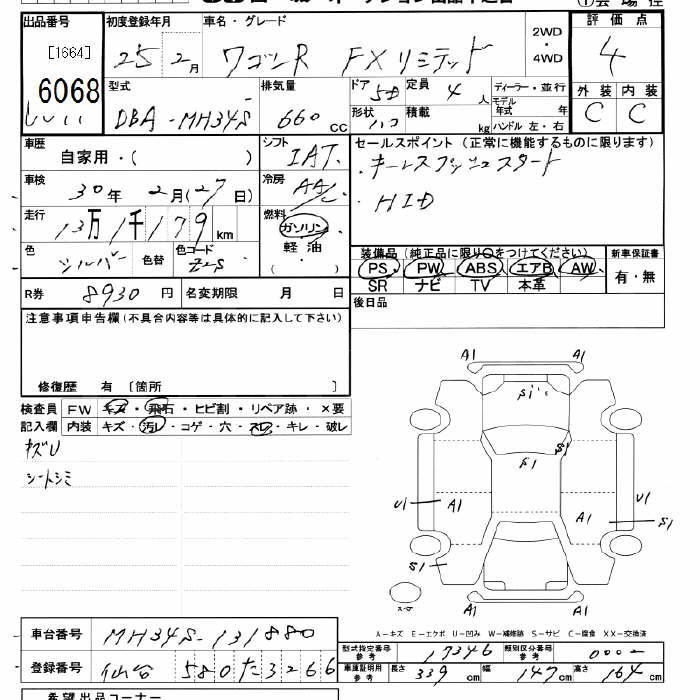 出品番号 初度登録年月 車名・グレード 2WD・4WD 評価点
[1664] 25年 2月 ワゴンR FXリミテッド 4
6068 型式 排気量 ドア 定員 ディーラー・並行 外装 内装
DBA-MH34S 660CC 5D 4人 モデル年式 年 C C
形状 ハコ 積載 kg ハンドル 左・右
車歴 自家用・( ) シフト IAT セールスポイント(正常に機能するものに限ります)
キーレスプッシュスタート
車検 30年 2月(27日) 冷房 AAC
HID
走行 13万1千179km 燃料 ガソリン
色 シルバー 色替 色コード Z2S 軽油 ( )
装備品(純正品に限り○をつけてください) 新車保証書
PS PW ABS エアB AW 有・無
SR ナビ TV 本革
R券 8930円 名変期限 月 日 後日品
注意事項申告欄(不具合内容等は具体的に記入して下さい)
修復歴 有 〔箇所 〕
検査員 FW キズ・飛石・ヒビ割・リペア跡・×要
記入欄 内装 キズ・汚レ・コゲ・穴・スレ・キレ・破レ
キズU
シートシミ
A1 A1
S1
S1 S1
U1 A1 A1 U1
S1
S1
A1 A1
A-キズ E-エクボ U-凹み W-補修跡 S-サビ C-腐食 XX-交換済
車台番号 MH34S-131880
型式指定番号 参考 17346 類別区分番号 参考 0002
登録番号 仙台 580 た 3266
車庫証明用 参考 長さ 339cm 幅 147cm 高さ 164cm
希望出品コーナー